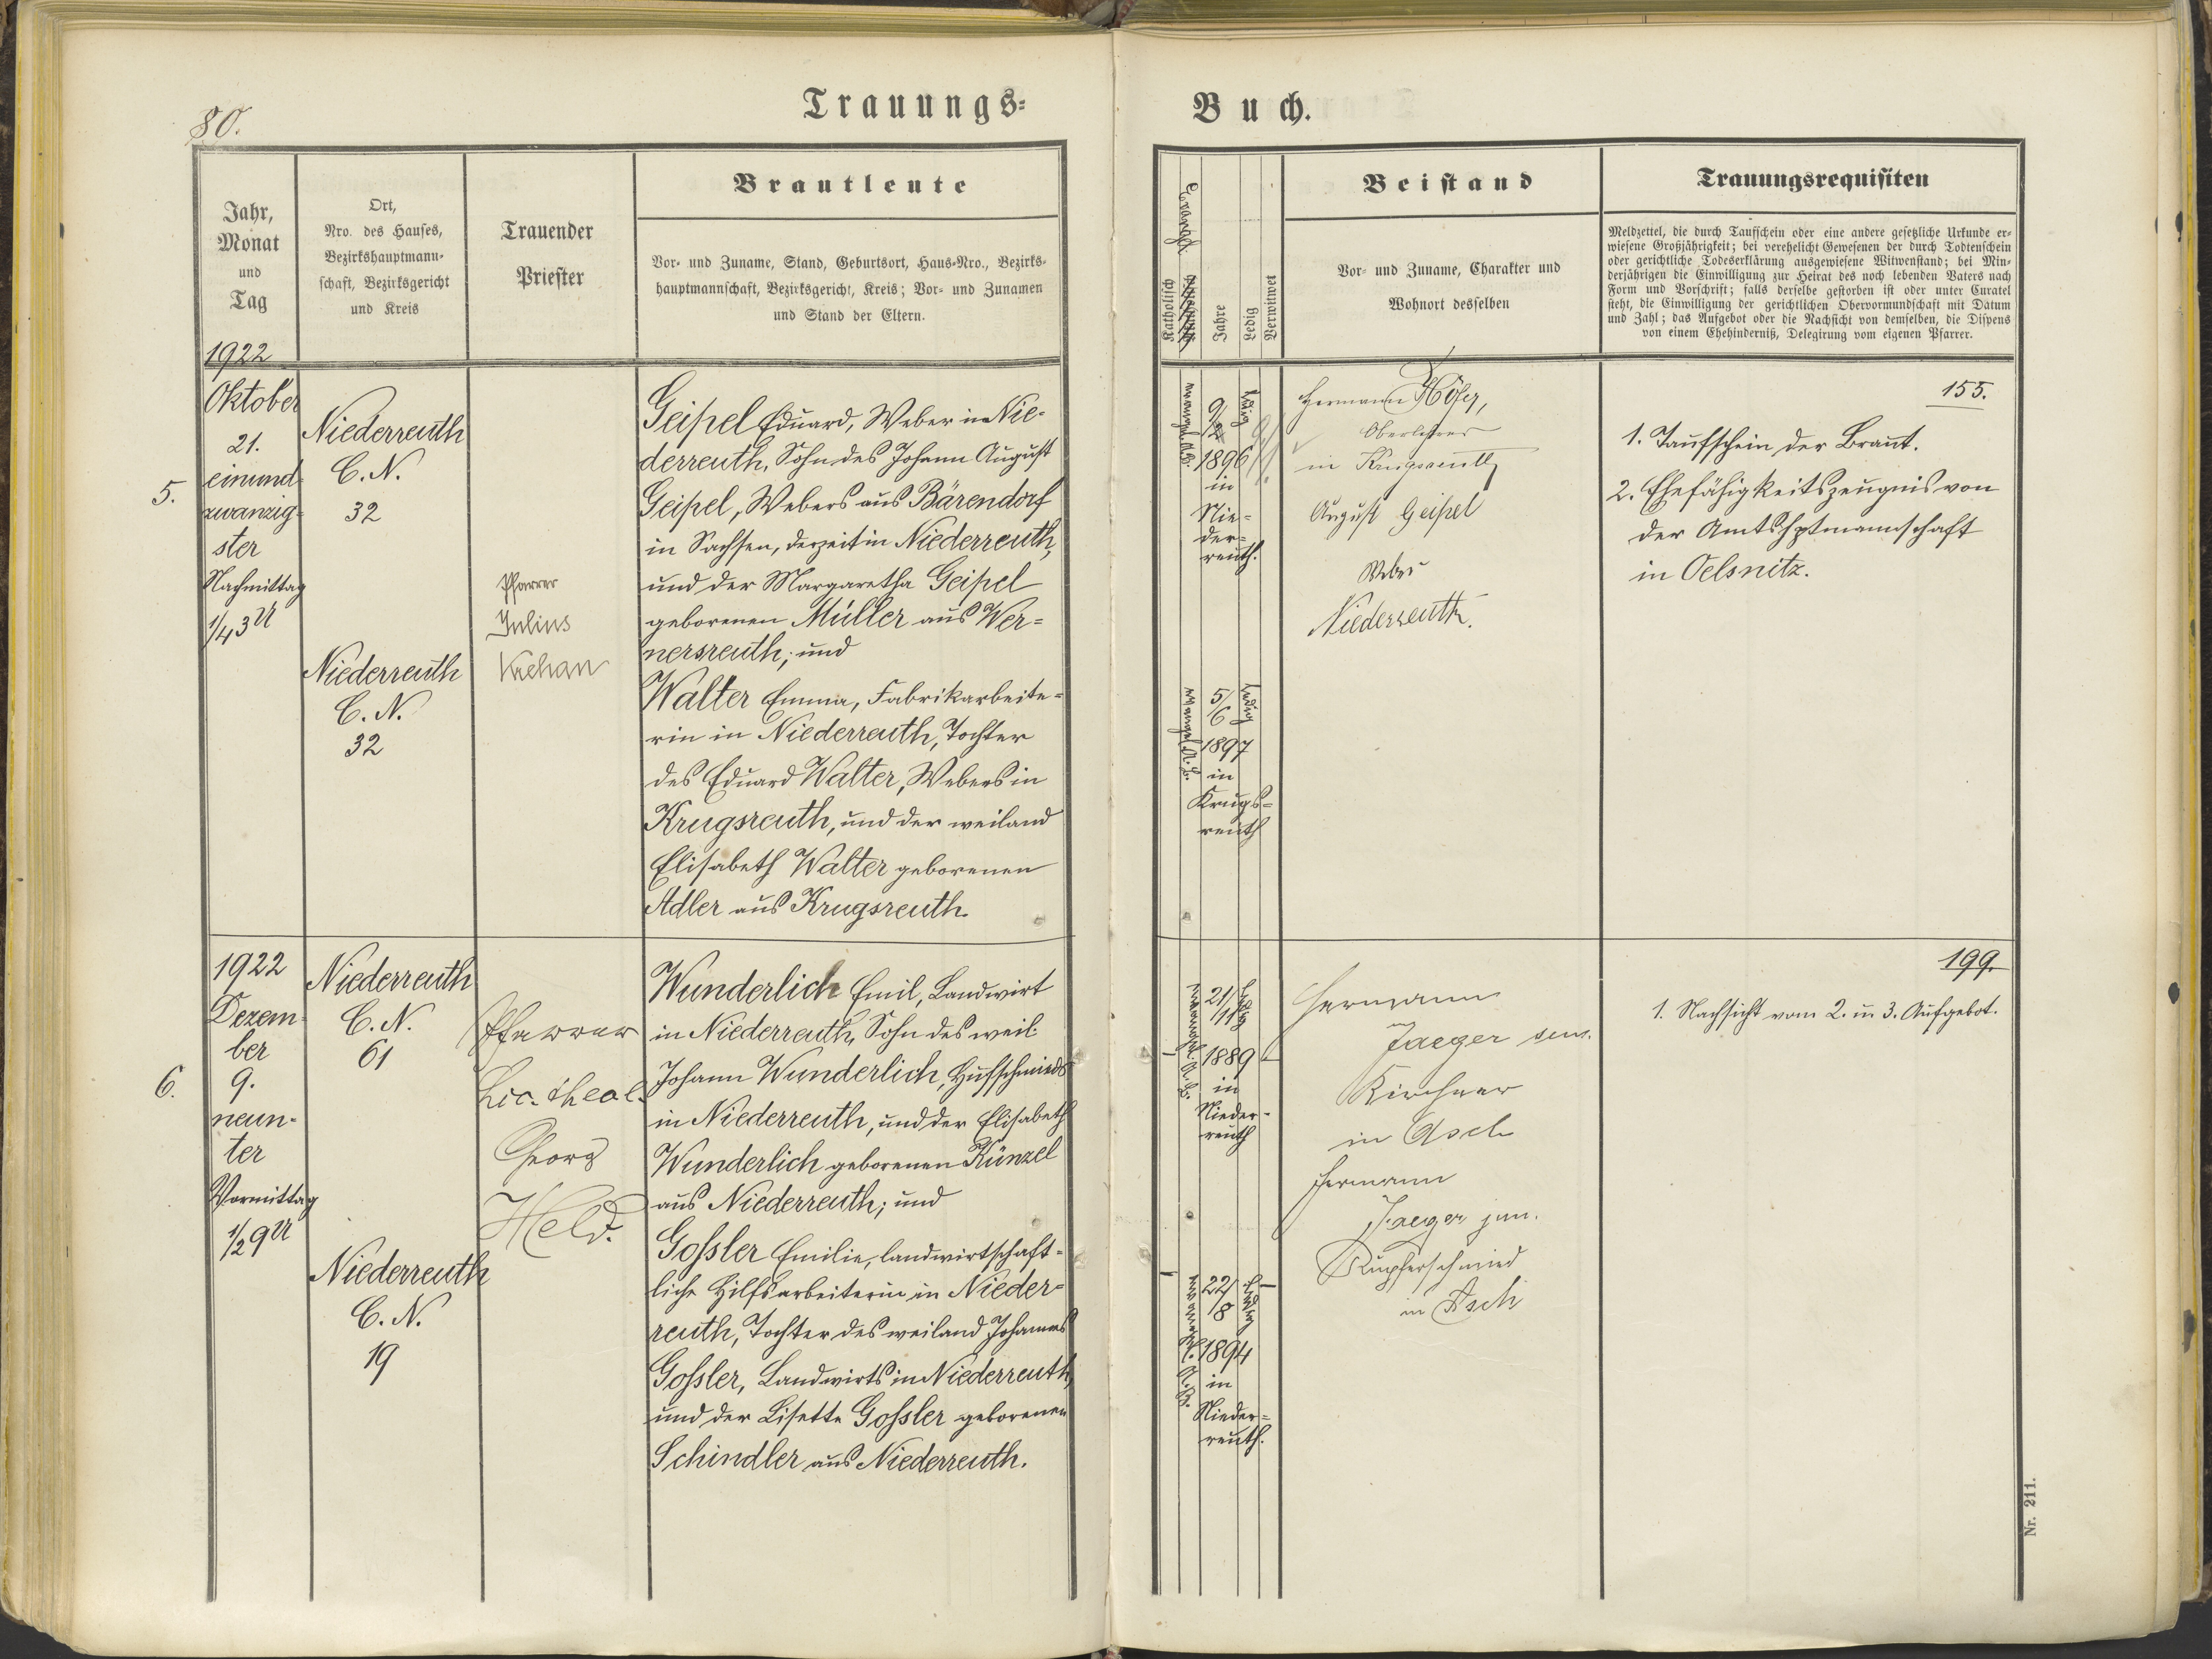 80.
Trauungs=
Jahr,
Monat
und
Tag
Ort,
Nro. des Hauses,
Bezirkshauptmann-
schaft, Bezirksgericht
und Kreis
Trauender
Priester
Brautleute
Vor- und Zuname, Stand, Geburtsort, Haus-Nro., Bezirks-
hauptmannschaft, Bezirksgericht, Kreis; Vor- und Zunamen
und Stand der Eltern.
1922
5.
Oktober
21.
einund
zwanzig-
ster
Nachmittag
1/4 3 U
Niederreuth
C. N.
32
Niederreuth
C. N.
32
Pfarrer
Julius
Krehan
Geipel Eduard, Weber in Nie-
derreuth, Sohn des Johann August
Geipel, Webers aus Bärendorf
in Sachsen, derzeit in Niederreuth,
und der Margaretha Geipel
geborenen Müller aus Wer=
nersreuth; und
Walter Emma, Fabrikarbeite=
rin in Niederreuth, Tochter
des Eduard Walter, Webers in
Krugsreuth, und der weiland
Elisabeth Walter geborenen
Adler aus Krugsreuth.
6.
1922
Dezem-
ber
9.
neun-
ter
Vormittag
1/2 9 U
Niederreuth
C. N.
61
Niederreuth
C. N.
19
Pfarrer
Lic. theol.
Georg
Held.
Wunderlich Emil, Landwirt
in Niederreuth, Sohn des weil.
Johann Wunderlich, Hufschmieds
in Niederreuth, und der Elisabeth
Wunderlich geborenen Künzel
aus Niederreuth; und
Goßler Emilie, landwirtschaft=
liche Hilfsarbeiterin in Nieder=
reuth, Tochter des weiland Johannes
Goßler, Landwirts in Niederreuth,
und der Lisette Goßler geborenen
Schindler aus Niederreuth.
Buch.
Evangel.
Katholisch
Jahre
Ledig
Verwitwet
Beistand
Vor- und Zuname, Charakter und
Wohnort desselben
Trauungsrequisiten
Meldzettel, die durch Taufschein oder eine andere gesetzliche Urkunde er-
wiesene Großjährigkeit; bei verehelicht Gewesenen der durch Todtenschein
oder gerichtliche Todeserklärung ausgewiesene Witwenstand; bei Min-
derjährigen die Einwilligung zur Heirat des noch lebenden Vaters nach
Form und Vorschrift; falls derselbe gestorben ist oder unter Curatel
steht, die Einwilligung der gerichtlichen Obervormundschaft mit Datum
und Zahl; das Aufgebot oder die Nachsicht von demselben, die Dispens
von einem Ehehinderniß, Delegirung vom eigenen Pfarrer.
evangel. A. B.
9/2
1896
in
Nie=
der=
reuth.
ledig
evangel. A. B.
5/6
1897
in
Krugs=
reuth
ledig
Hermann Höfer,
Oberlehrer
in Krugsreuth
August Geipel
Weber
Niederreuth.
155.
1. Taufschein der Braut.
2. Ehefähigkeitszeugnis von
der Amtshptmannschaft
in Oelsnitz.
evangel. A. B.
21/11
1889
in
Nieder-
reuth
ledig
evangel. A. B.
22/8
1894
in
Nieder=
reuth.
ledig
Hermann
Jaeger sen.
Kirchner
in Asch
Hermann
Jaeger jun.
Kupferschmied
in Asch
199.
1. Nachsicht vom 2. u 3. Aufgebot.
Nr. 211.